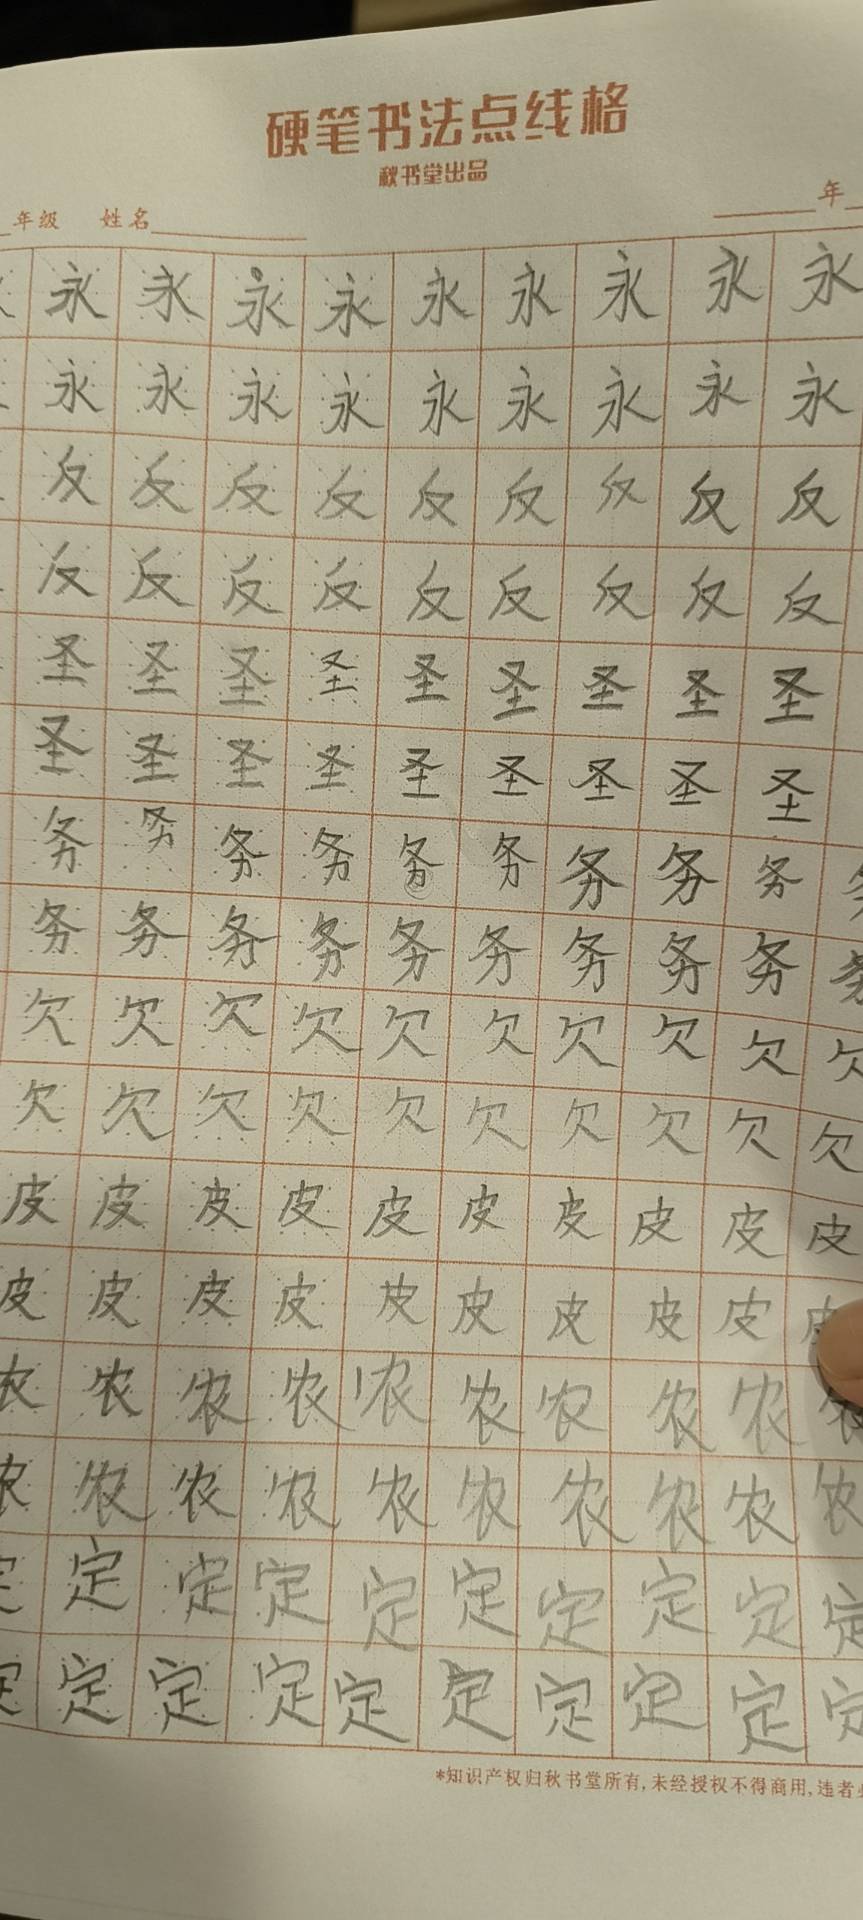 硬笔书法点线格
秋书堂出品
年级 姓名 年
永 永 永 永 永 永 永 永 永
永 永 永 永 永 永 永 永 永
反 反 反 反 反 反 反 反 反
反 反 反 反 反 反 反 反 反
圣 圣 圣 圣 圣 圣 圣 圣 圣
圣 圣 圣 圣 圣 圣 圣 圣 圣
务 务 务 务 务 务 务 务 务
务 务 务 务 务 务 务 务 务 务
欠 欠 欠 欠 欠 欠 欠 欠 欠 欠
欠 欠 欠 欠 欠 欠 欠 欠 欠 欠
皮 皮 皮 皮 皮 皮 皮 皮 皮 皮
皮 皮 皮 皮 皮 皮 皮 皮 皮
农 农 农 农 农 农 农 农 农 农
农 农 农 农 农 农 农 农 农 农
定 定 定 定 定 定 定 定 定
定 定 定 定 定 定 定 定 定
*知识产权归秋书堂所有,未经授权不得商用,违者